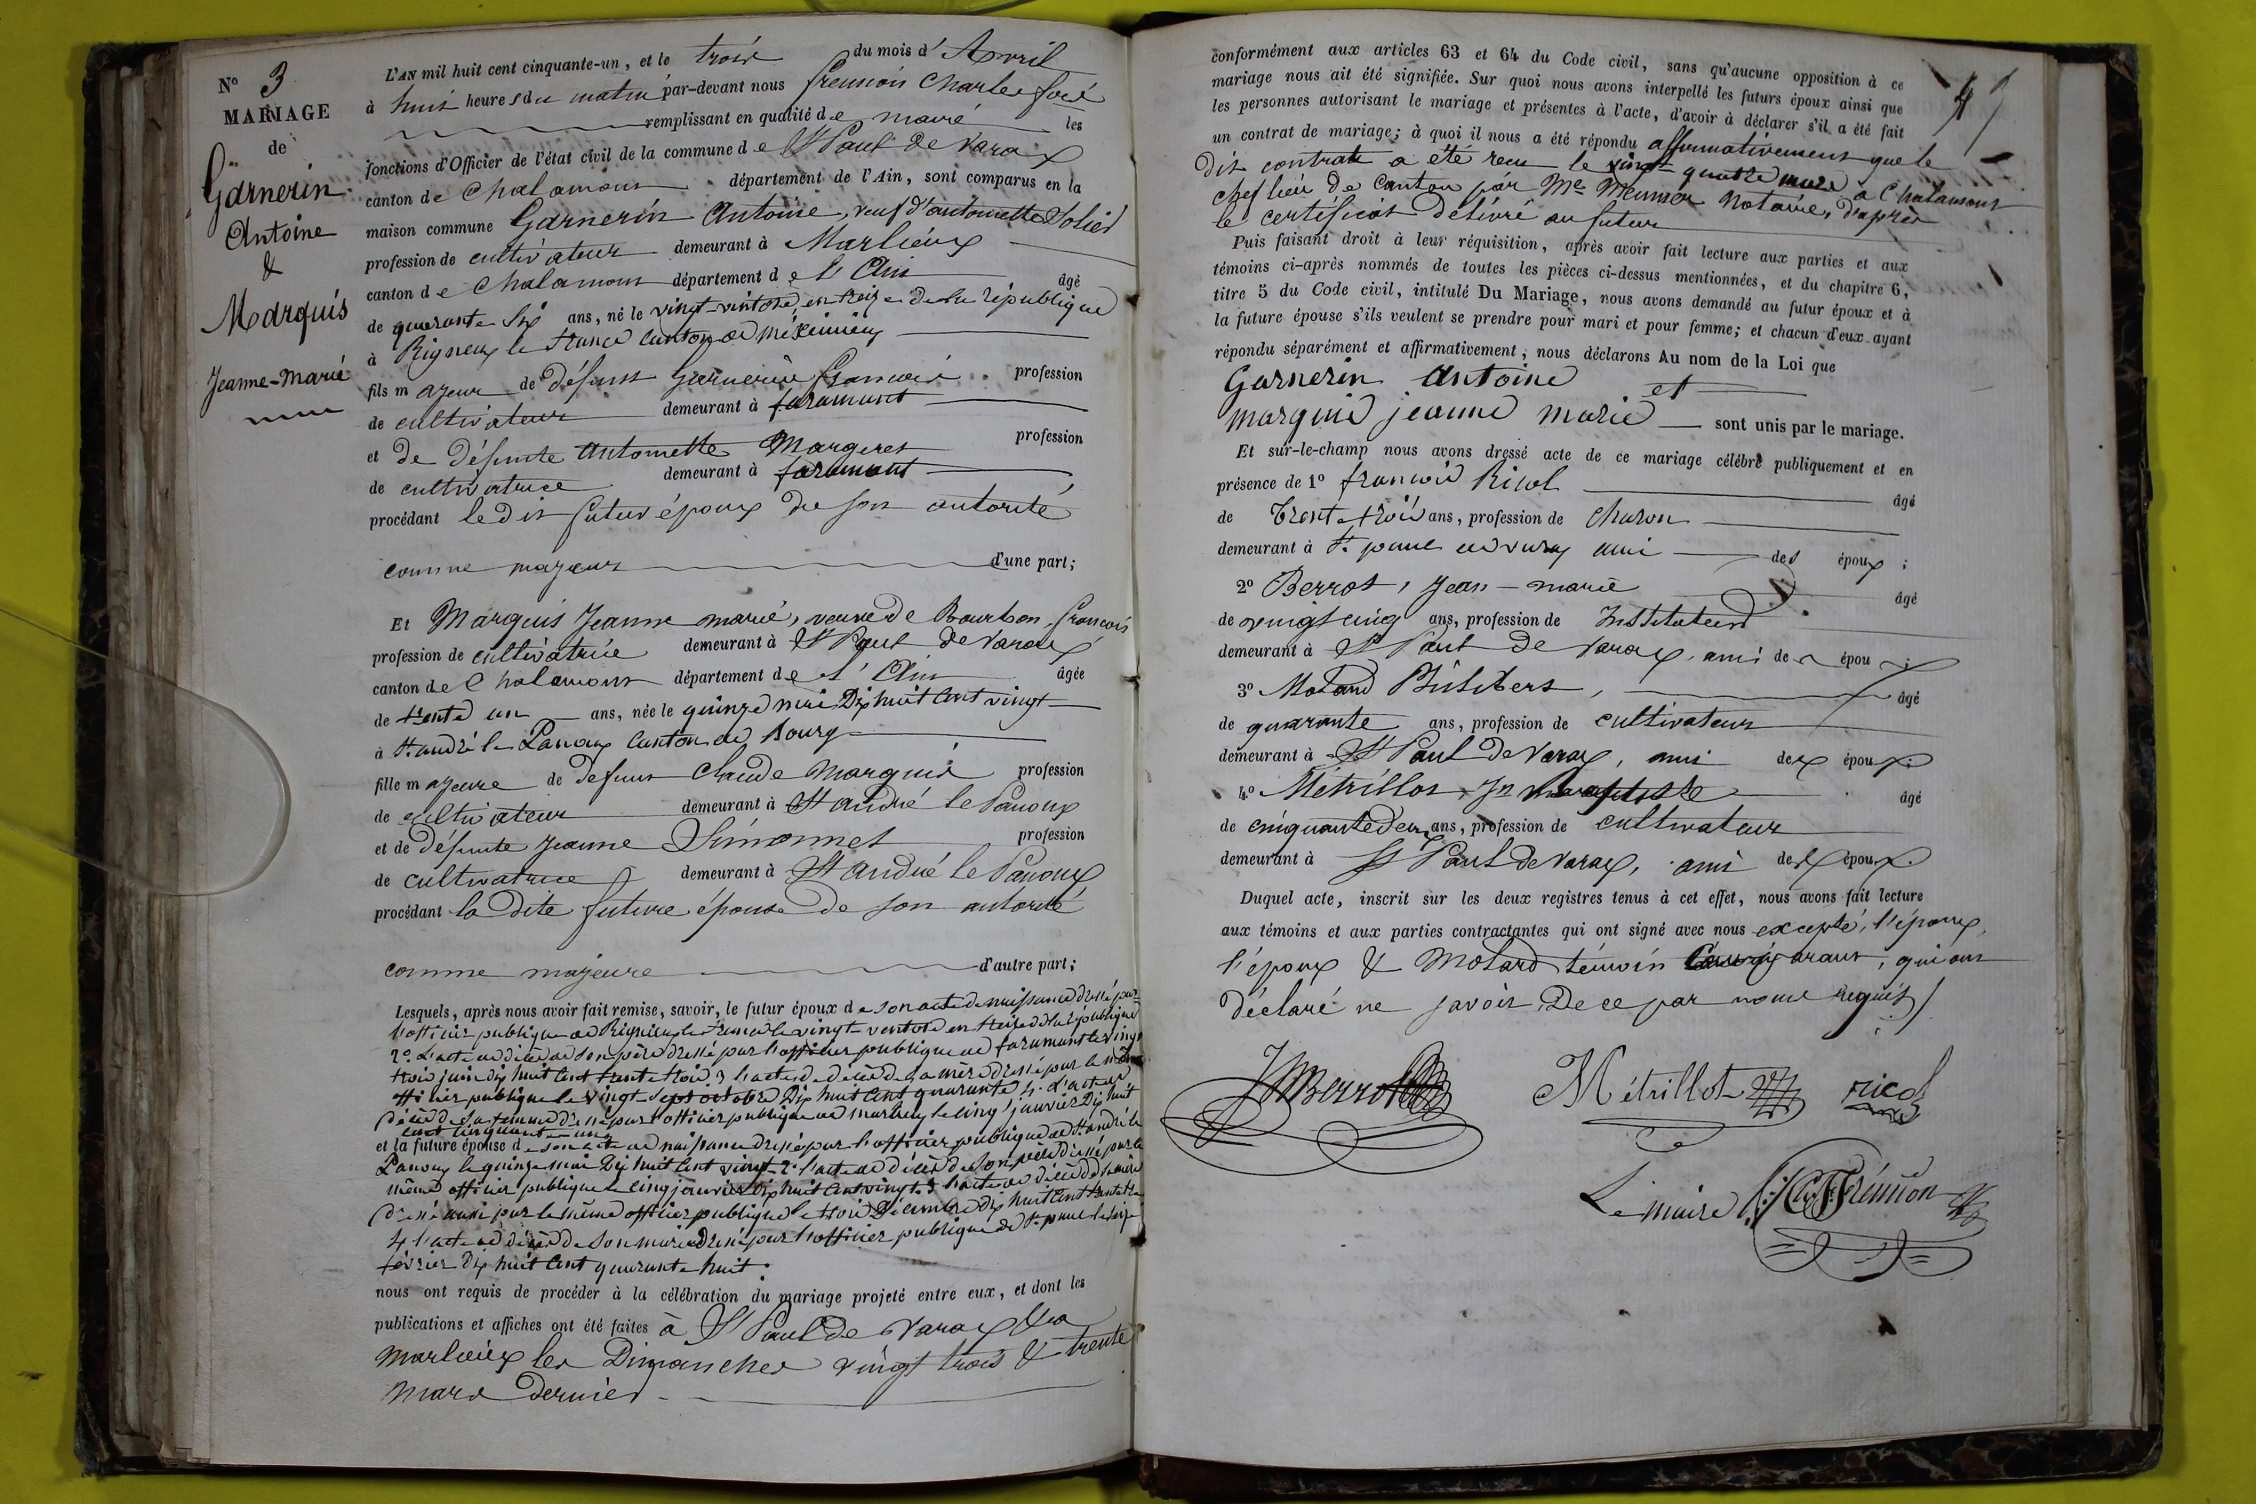 N° 3
MARIAGE
de
Garnerin
Antoine
&
Marquis
Jeanne-Marie
L'AN mil huit cent cinquante-un, et le trois du mois d'Avril
à huit heures du matin par-devant nous fremion Charles
remplissant en qualité de maire les
fonctions d'Officier de l'état civil de la commune de St Paul de Varax
canton de Chalamont département de l'Ain, sont comparus en la
maison commune Garnerin Antoine, veuf d'antoinette
profession de cultivateur demeurant à Marlieux
canton de Chalamont département de l'Ain âgé
de quarante six ans, né le vingt-ventose en treize de la république
à Rigneux le franc canton de méximieux
fils majeur de défunt Garnerin françois profession
de cultivateur demeurant à faramant
et de défunte Antoinette Margeret profession
de cultivatrice demeurant à faramant
procédant le dit futur époux de son autorité
comme majeur d'une part;
Et Marquis Jeanne marie, veuve de Bourbon françois
profession de cultivatrice demeurant à St Paul de Varax
canton de Chalamont département de l'Ain âgée
de trente un ans, née le quinze mai Dix huit cent vingt
à St. andré le Panoux canton de Bourg
fille majeure de defunt Claude Marquis profession
de cultivateur demeurant à St andré le Panoux
et de défunte Jeanne Simonnet profession
de cultivatrice demeurant à St andré le Panoux
procédant la dite future épouse de son autorité
comme majeure d'autre part;
Lesquels, après nous avoir fait remise, savoir, le futur époux de son acte de naissance dressé par
l'officier publique de Rigneux le franc le vingt-ventose en treize de la république
2° L'acte de décès de son père dressé par l'officier publique de faramant le vingt
trois juin dix huit cent trente trois 3 l'acte de décès de sa mère dressé par le même
officier publique le vingt sept octobre Dix huit cent quarante 4. L'acte de
décès de sa femme dressé par l'officier publique de marlieux le cinq janvier Dix huit
cent cinquante-un
et la future épouse de son acte de naissance dressé par l'officier publique de St. andré le
Panoux le quinze mai Dix huit cent vingt-2° l'acte de décès de son père dressé par le
même officier publique le cinq janvier dix huit cent vingt 3 l'acte de décès de sa mère
dressé aussi par le même officier publique le trois Décembre dix huit cent
4 l'acte de décès de son mari dressé par l'officier publique de St. paul le
février dix huit cent quarante huit.
nous ont requis de procéder à la célébration du mariage projeté entre eux, et dont les
publications et affiches ont été faites à St Paul de Varax & a
Marlieux les Dimanches vingt trois & trente
mars dernier
conformément aux articles 63 et 64 du Code civil, sans qu'aucune opposition à ce
mariage nous ait été signifiée. Sur quoi nous avons interpellé les futurs époux ainsi que
les personnes autorisant le mariage et présentes à l'acte, d'avoir à déclarer s'il a été fait
un contrat de mariage; à quoi il nous a été répondu affirmativement que le
dit contrat a été recu le vingt-quatre mars à Chalamont
chef lieu de Canton par Me Meunier Notaire, d'après
le certificat délivré au futur
Puis faisant droit à leur réquisition, après avoir fait lecture aux parties et aux
témoins ci-après nommés de toutes les pièces ci-dessus mentionnées, et du chapitre 6,
titre 5 du Code civil, intitulé Du Mariage, nous avons demandé au futur époux et à
la future épouse s'ils veulent se prendre pour mari et pour femme; et chacun d'eux ayant
répondu séparément et affirmativement, nous déclarons Au nom de la Loi que
Garnerin Antoine et
marquis jeanne marie sont unis par le mariage.
Et sur-le-champ nous avons dressé acte de ce mariage célébré publiquement et en
présence de 1° françois Ricol âgé
de trente trois ans, profession de charon
demeurant à St. paul de varax ami des époux;
2° Berrot, Jean-marie âgé
de vingt cinq ans, profession de Instituteur
demeurant à St Paul de Varax, ami des époux;
3° Molard Philibert, âgé
de quarante ans, profession de cultivateur
demeurant à St Paul de Varax, ami des époux;
4° Métrillot Jn Baptiste âgé
de cinquante deux ans, profession de cultivateur
demeurant à St Paul de Varax, ami des époux.
Duquel acte, inscrit sur les deux registres tenus à cet effet, nous avons fait lecture
aux témoins et aux parties contractantes qui ont signé avec nous excepté, l'épouse,
l'époux & Molard témoin qui ont
déclaré ne savoir, De ce par nous requis /
JMBerrot Métrillot ricol
Le maire C. Frémion